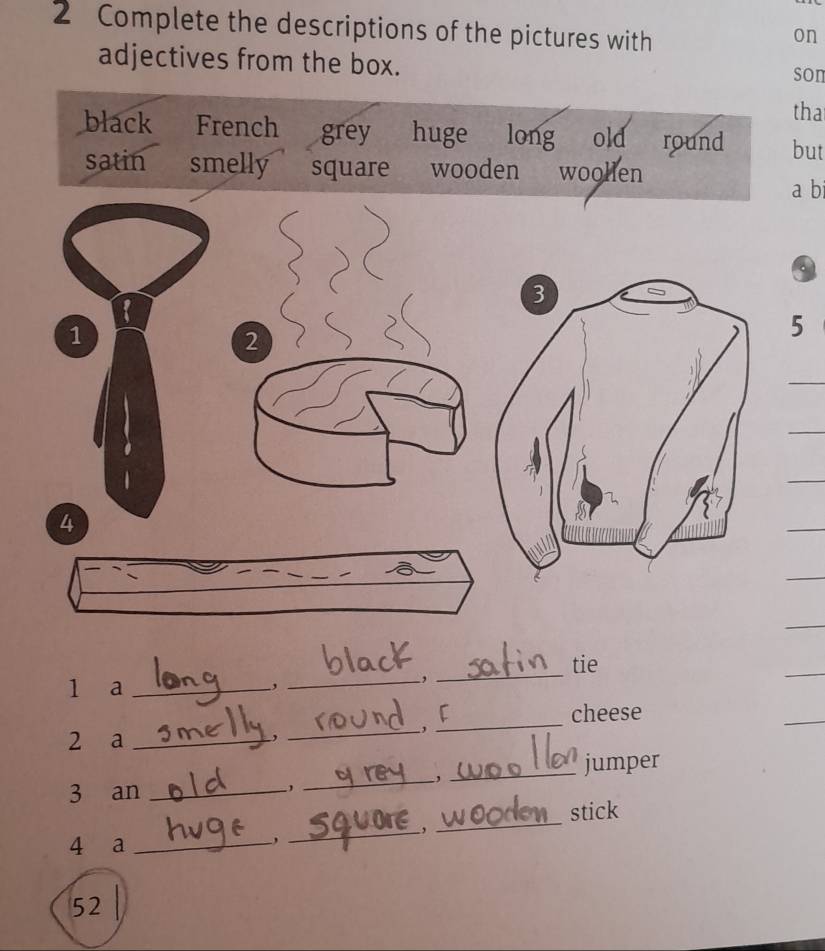 2 Complete the descriptions of the pictures with
adjectives from the box.
black French grey huge long old round
satin smelly square wooden woollen
1
2
3
4
1 a long, black, satin tie
2 a smelly, round, F cheese
3 an old, grey, woollen jumper
4 a huge, square, wooden stick
52
on
som
tha
but
a bi
5